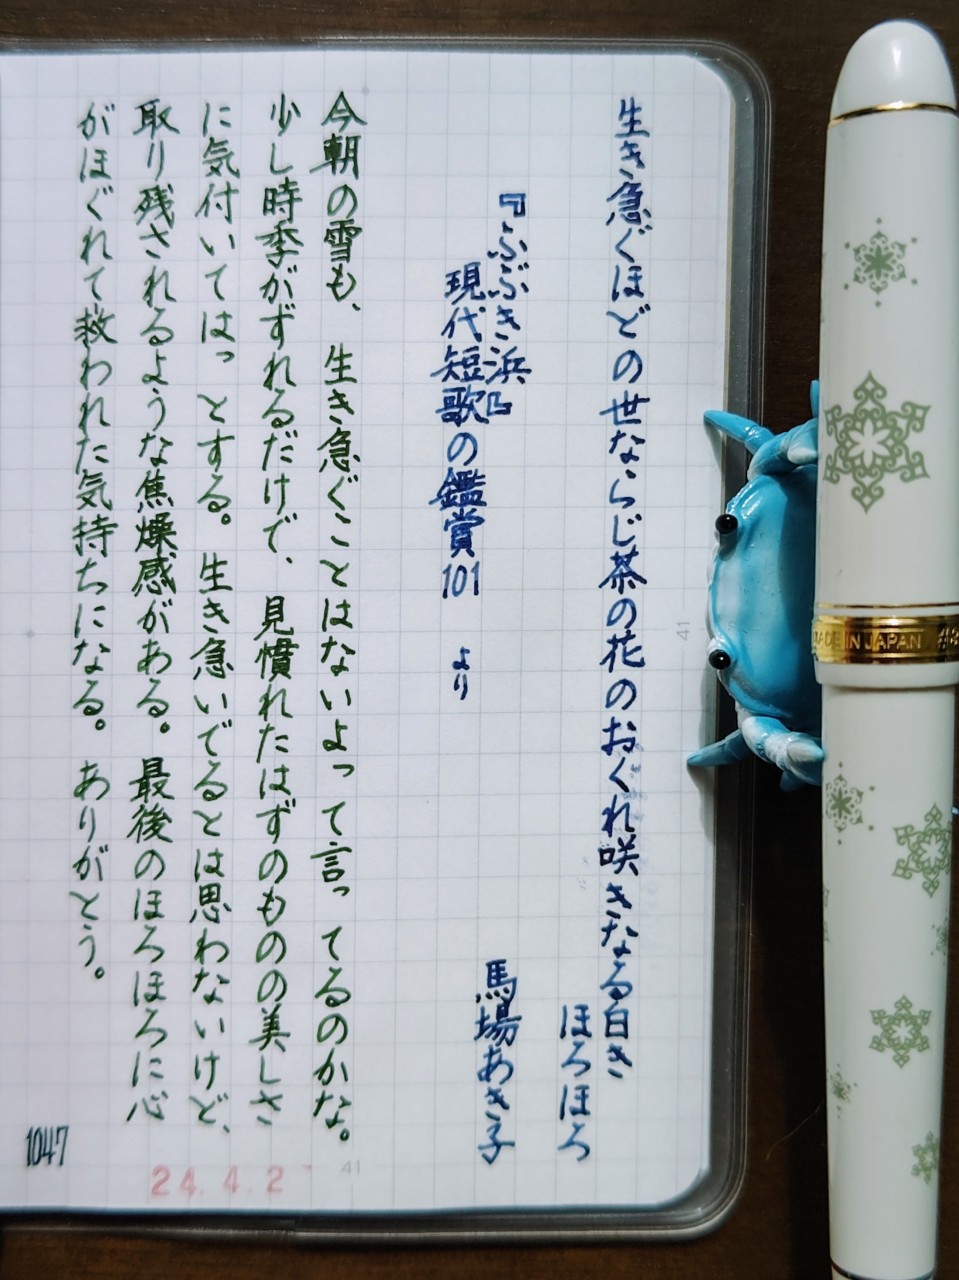 生き急ぐほどの世ならじ茶の花のおくれ咲きなる白き
ほろほろ
『ふぶき浜』
馬場あき子
現代短歌の鑑賞101 より
今朝の雪も、生き急ぐことはないよって言ってるのかな。
少し時季がずれるだけで、見慣れたはずのものの美しさ
に気付いてはっとする。生き急いでるとは思わないけど、
取り残されるような焦燥感がある。最後のほろほろに心
がほぐれて救われた気持ちになる。ありがとう。
1047
24.4.2
41
41
MADE IN JAPAN